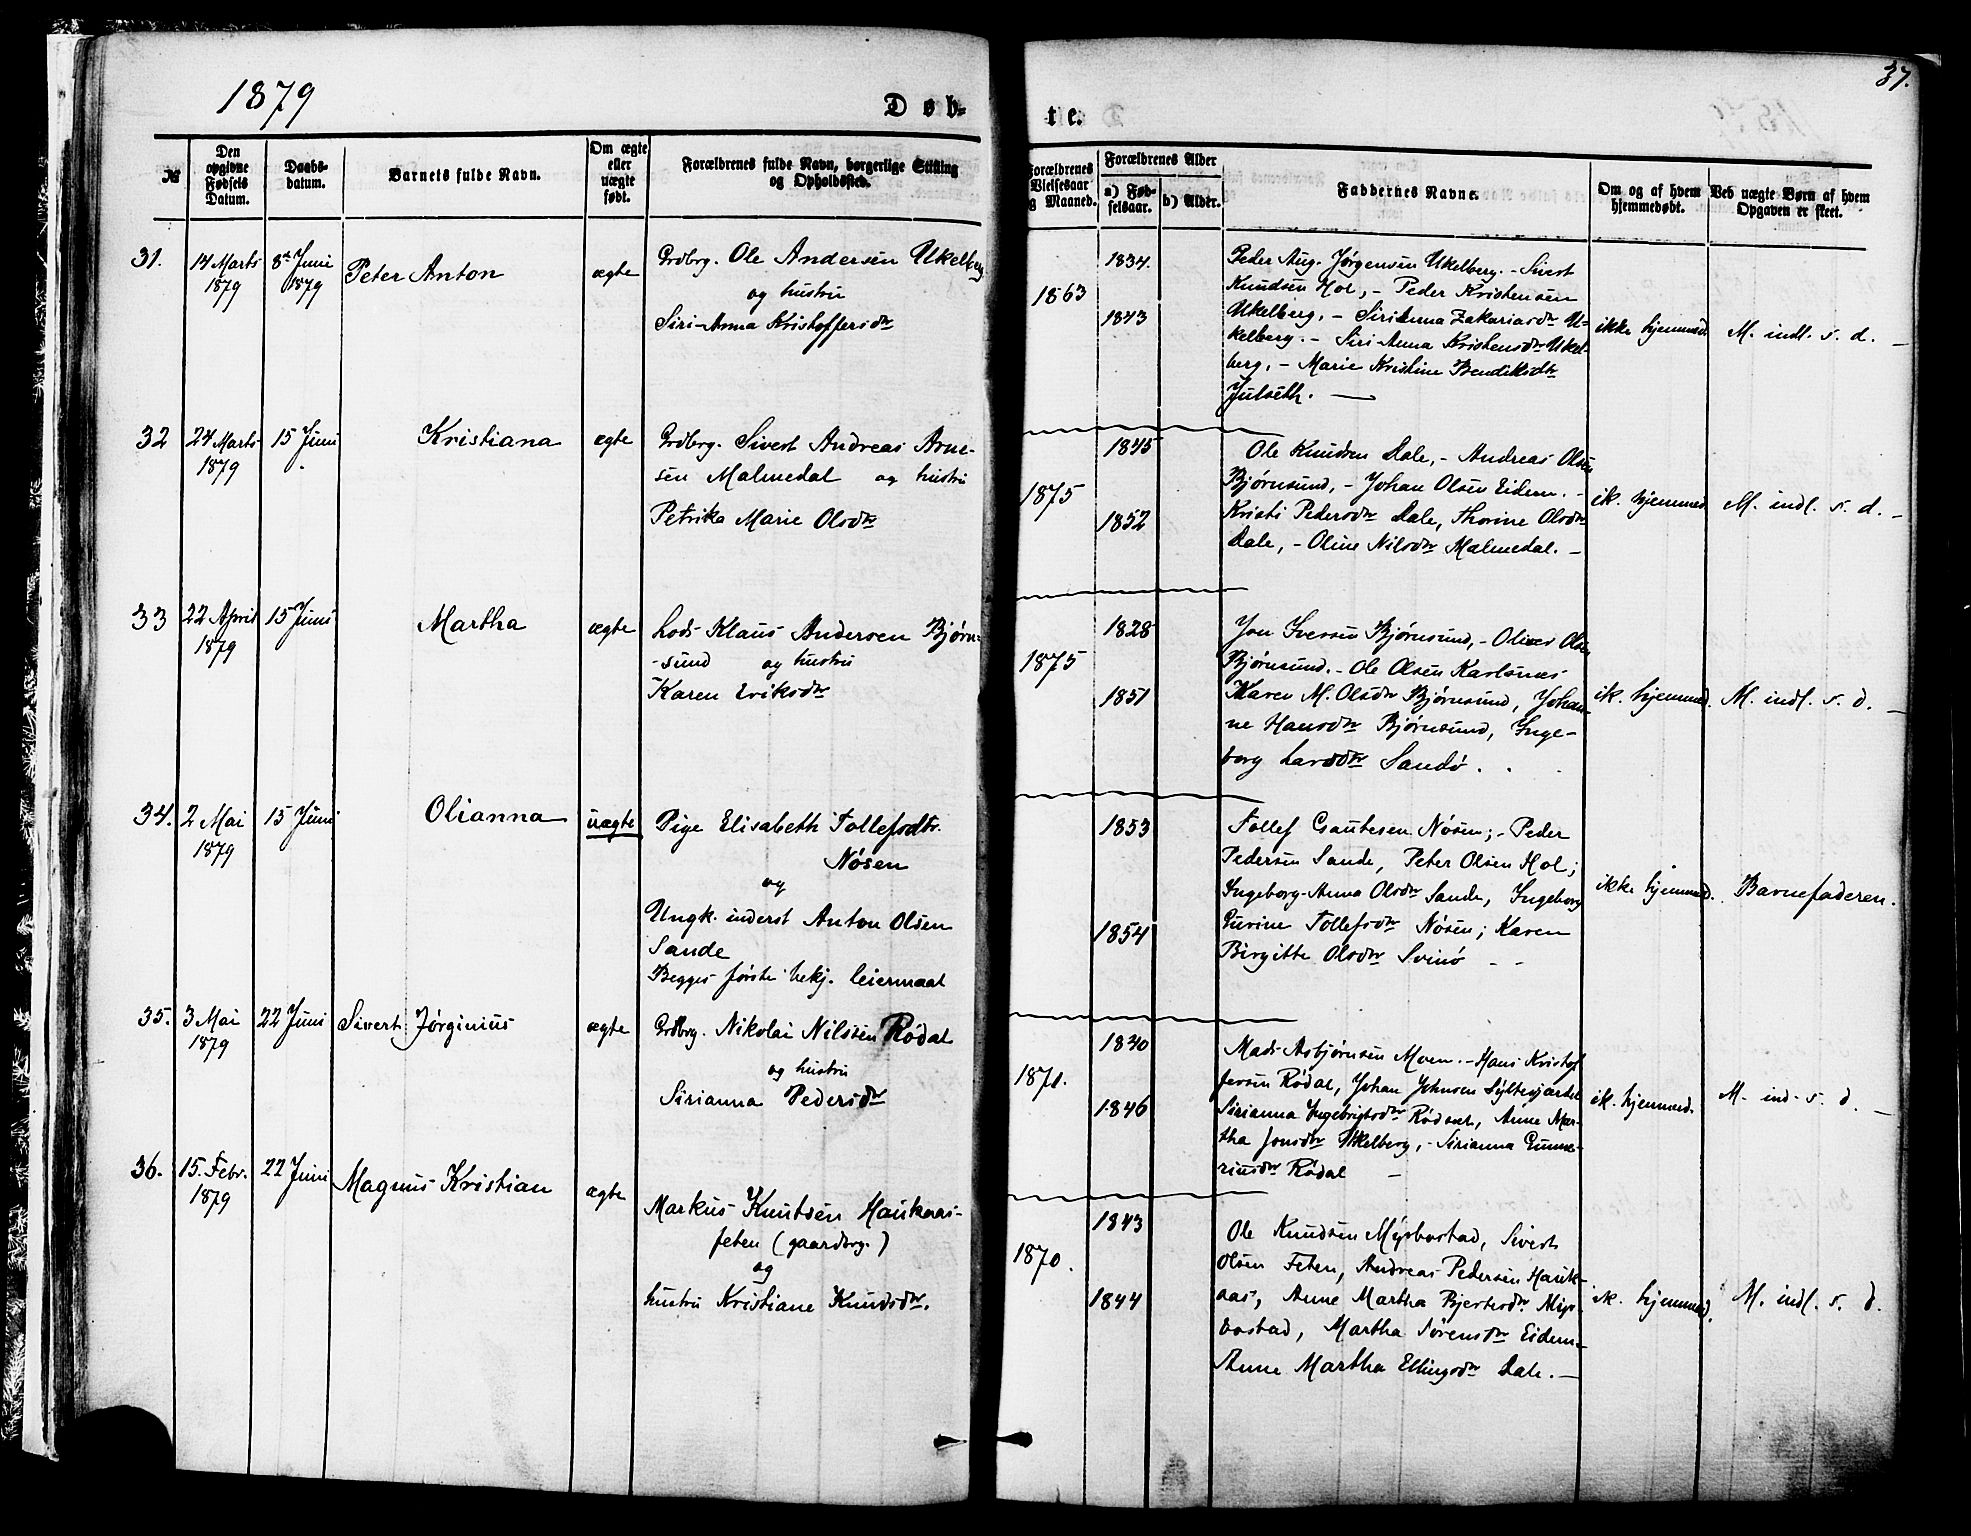 1879
Døb-
te.
37.
№
Den opgivne Fødsels Datum.
Daabs-datum.
Barnets fulde Navn.
Om ægte eller uægte født.
Forældrenes fulde Navn, borgerlige Stilling og Opholdssted.
Forældrenes Vielsesaar og Maaned.
Forældrenes Alder
a) Fød-selsaar.
b) Alder.
Faddernes Navne.
Om og af hvem hjemmedøbt.
Ved uægte Børn af hvem Opgaven er skeet.
31.
14 Marts
1879
8de Juni
1879
Peter Anton
ægte
Grdbrg. Ole Andersen Ukelberg
og hustru
Siri-Anna Kristoffersdtr
1863
1834.
1843
Peder Aug. Jørgensen Ukelberg. - Sivert
Knudsen Hol, - Peder Kristensen
Ukelberg, - Zakariasdtr U-
kelberg. - Siri-Anna Kristensdtr Ukel-
berg, - Marie Kristine Bendiksdtr
Julseth. —
ikke hjemmed.
M. indl. s. d. —
32
24 Marts
1879
15 Juni
Kristiana
ægte
Grdbrg. Sivert Andreas Arne-
sen Malmedal og hustru
Petrika Marie Olsdtr
1875
1845
1852
Ole Knudsen Dale, - Andreas Olsen
Bjørnsund, - Johan Olsen Eidem. -
Kristi Pedersdtr Dale, Thorine Olsdtr
Dale, - Oline Nilsdtr Malmedal. -
ik. hjemmed.
M. indl. s. d. —
33
22 April
1879
15 Juni
Martha
ægte
Lods Klaus Andersen Bjørn-
-sund og hustru
Karen Eriksdtr
1875
1828
1851
Jon Iversen Bjørnsund, - Oliver Olsen
Bjørnsund. - Ole Olsen Karlsnæs
Karen M. Olsdtr Bjørnsund, Johan-
ne Hansdtr Bjørnsund, Inge-
borg Larsdtr Sandø.
ik. hjemmed.
M. indl. s. d. —
34.
2 Mai
1879
15 Juni
Olianna
uægte
Pige Elisabeth Tollefsdtr.
Nøsen
og
Ungk. inderst Anton Olsen
Sande
Begges første bekj. leiermaal
1853
1854
Tollef Gautesen Nøsen; - Peder
Pedersen Sande, Peter Olsen Hol;
Ingeborg-Anna Olsdtr Sande, Ingeborg
Gurine Tollefsdtr Nøsen; Karen
Birgitte Olsdtr Svinø - -
ikke hjemmed.
Barnefaderen.
35.
3 Mai
1879
22 Juni
Sivert Jørginius
ægte
Grdbrg. Nikolai Nilssen Rødal
og hustru
Sirianna Pedersdtr
1871.
1840
1846
Mads Asbjørnsen Moen. - Hans Kristof
fersen Rødal, Johan Johnsen
Sirianna Ingebrigtsdtr Rødal, Anne Mar-
tha Jonsdtr Ukelberg, - Sirianna Gunne-
riusdtr Rødal —
ik. hjemmed.
M. ind. s. d. —
36.
15. Febr.
1879
22 Juni
Magnus Kristian
ægte
Markus Knutsen Haukaas-
feten (gaardbrg.)
og
hustru Kristiane Knudsdtr.
1870.
1843
1844
Ole Knudsen Myrbostad, Sivert
Olsen Feten, Andreas Pedersen Hauk-
aas, Anne Martha Bjertesdtr. Myr-
bostad, Martha Sørensdtr Eidem-
Anne Martha Ellingsdtr Dale. —
ik. hjemmed.
M. indl. s. d.